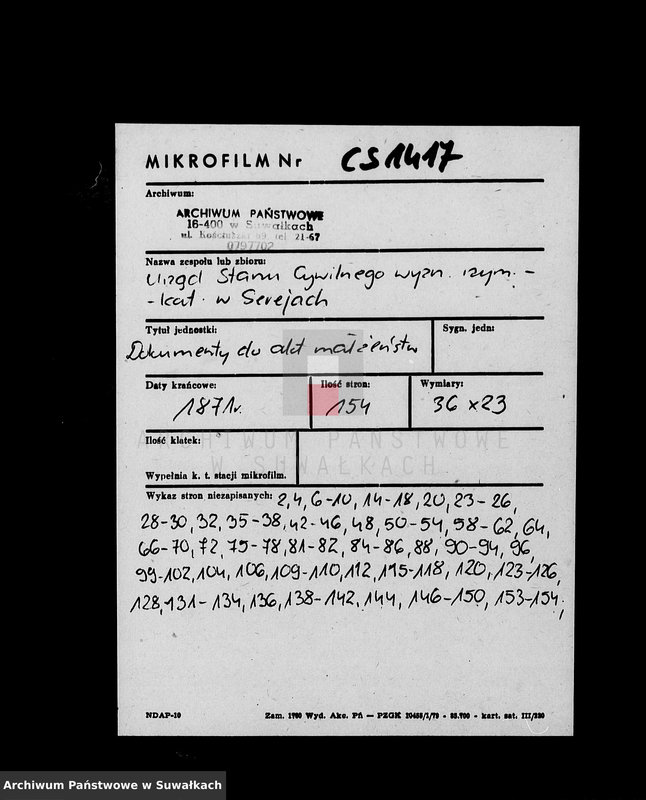 MIKROFILM Nr CS1417
Archiwum:
ARCHIWUM PAŃSTWOWE
16-400 w Suwałkach
ul. Kościuszki 69 tel 21-67
0797702
Nazwa zespołu lub zbioru:
Urząd Stanu Cywilnego wyzn. rzym.-
-kat. w Serejach
Tytuł jednostki:
Sygn. jedn:
Dokumenty do akt małżeństw
Daty krańcowe:
Ilość stron:
Wymiary:
1871r.
154
36 x 23
Ilość klatek:
ARCHIWUM PAŃSTWOWE
W SUWAŁKACH
Wypełnia k. t. stacji mikrofilm.
Wykaz stron niezapisanych: 2,4,6-10, 14-18, 20, 23-26,
28-30, 32, 35-38, 42-46, 48, 50-54, 58-62, 64,
66-70, 72, 75-78, 81-82, 84-86, 88, 90-94, 96,
99-102, 104, 106, 109-110, 112, 115-118, 120, 123-126,
128, 131-134, 136, 138-142, 144, 146-150, 153-154,
NDAP-10
Zam. 1780 Wyd. Akc. Pń — PZGK 10455/1/79 - 55.700 - kart. sat. III/230
Archiwum Państwowe w Suwałkach